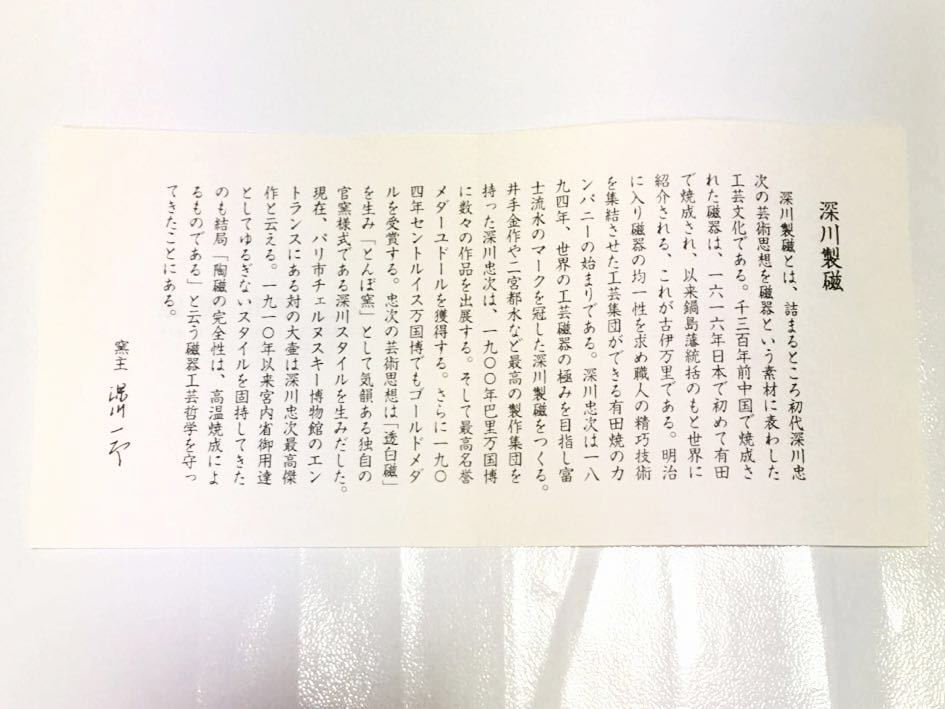 深川製磁
深川製磁とは、詰まるところ初代深川忠
次の芸術思想を磁器という素材に表わした
工芸文化である。千三百年前中国で焼成さ
れた磁器は、一六一六年日本で初めて有田
で焼成され、以来鍋島藩統括のもと世界に
紹介される、これが古伊万里である。明治
に入り磁器の均一性を求め職人の精巧技術
を集結させた工芸集団ができる有田焼のカ
ンパニーの始まりである。深川忠次は一八
九四年、世界の工芸磁器の極みを目指し富
士流水のマークを冠した深川製磁をつくる。
井手金作や二宮都水など最高の製作集団を
持った深川忠次は、一九〇〇年巴里万国博
に数々の作品を出展する。そして最高名誉
メダーユドールを獲得する。さらに一九〇
四年セントルイス万国博でもゴールドメダ
ルを受賞する。忠次の芸術思想は「透白磁」
を生み「とんぼ窯」として気韻ある独自の
官窯様式である深川スタイルを生みだした。
現在、パリ市チェルヌスキー博物館のエン
トランスにある対の大壷は深川忠次最高傑
作と云える。一九一〇年以来宮内省御用達
としてゆるぎないスタイルを固持してきた
のも結局「陶磁の完全性は、高温焼成によ
るものである」と云う磁器工芸哲学を守っ
てきたことにある。
窯主 深川